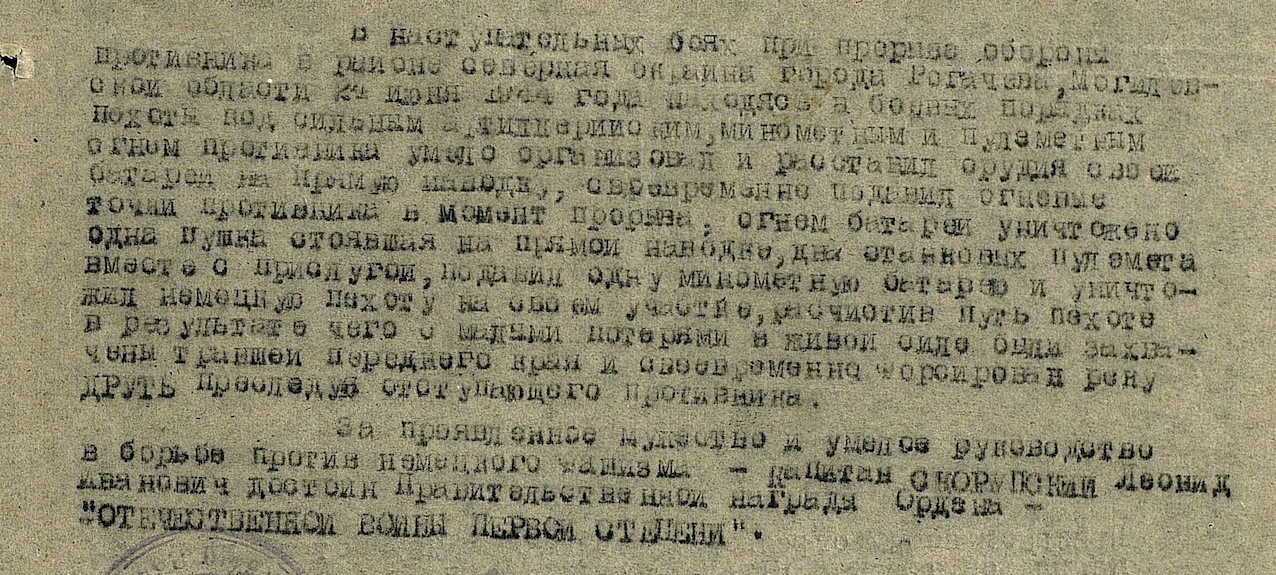 В наступательных боях при прорыве обороны
противника в районе северная окраина города Рогачева, Могилев-
ской области 24 июня 1944 года находясь в боевых порядках
пехоты под сильным артиллерийским, минометным и пулеметным
огнем противника умело организовал и расставил орудия своей
батареи на прямую наводку, своевременно подавил огневые
точки противника в момент прорыва, огнем батареи уничтожено
одна пушка стоявшая на прямой наводке, два станковых пулемета
вместе с прислугой, подавил одну минометную батарею и уничто-
жил немецкую пехоту на своем участке, расчистив путь пехоте
в результате чего с малыми потерями в живой силе были захва-
чены траншеи переднего края и своевременно форсирован реку
ДРУТЬ преследуя отступающего противника.
За проявленное мужество и умелое руководство
в борьбе против немецкого фашизма - капитан СКОРУПСКИЙ Леонид
Иванович достоин правительственной награды Ордена -
"ОТЕЧЕСТВЕННОЙ ВОЙНЫ ПЕРВОЙ СТЕПЕНИ".